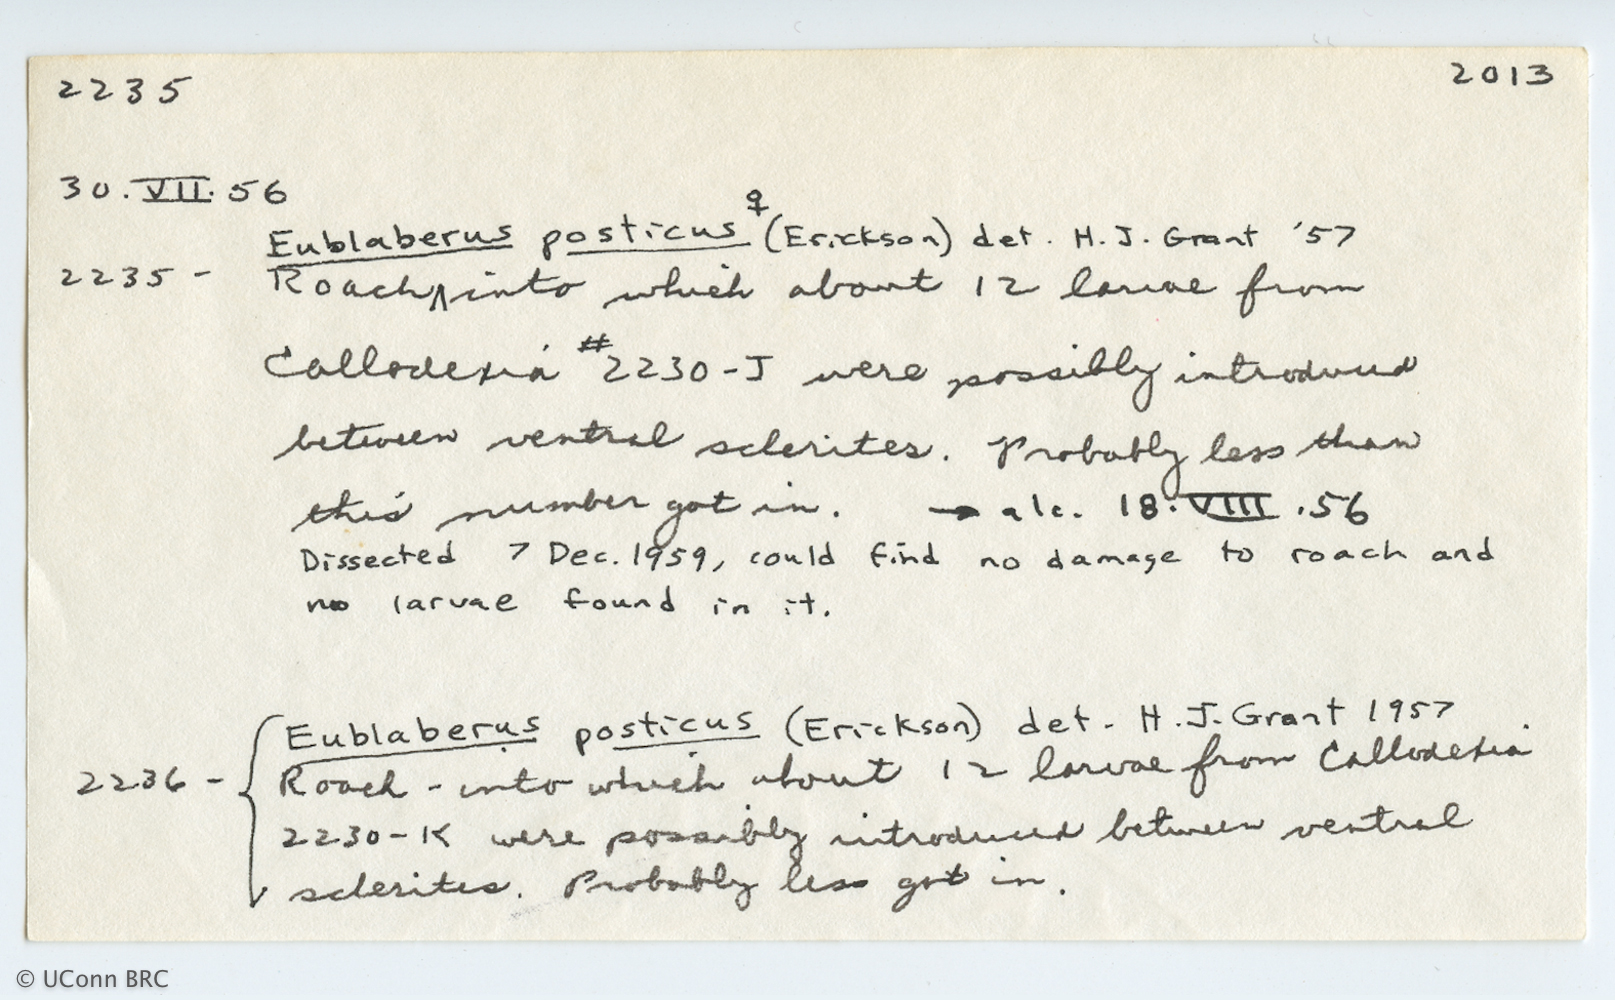 2235 2013
30.VII.56
Eublaberus posticus ♀ (Erickson) det. H.J. Grant '57
2235 - Roach ∧ into which about 12 larvae from
Callodexia #2230-J were possibly introduced
between ventral sclerites. Probably less than
this number got in. → alc. 18.VIII.56
Dissected 7 Dec. 1959, could find no damage to roach and
no larvae found in it.
Eublaberus posticus (Erickson) det. H.J. Grant 1957
2236 - { Roach - into which about 12 larvae from Callodexia
2230-K were possibly introduced between ventral
sclerites. Probably less got in.
© UConn BRC